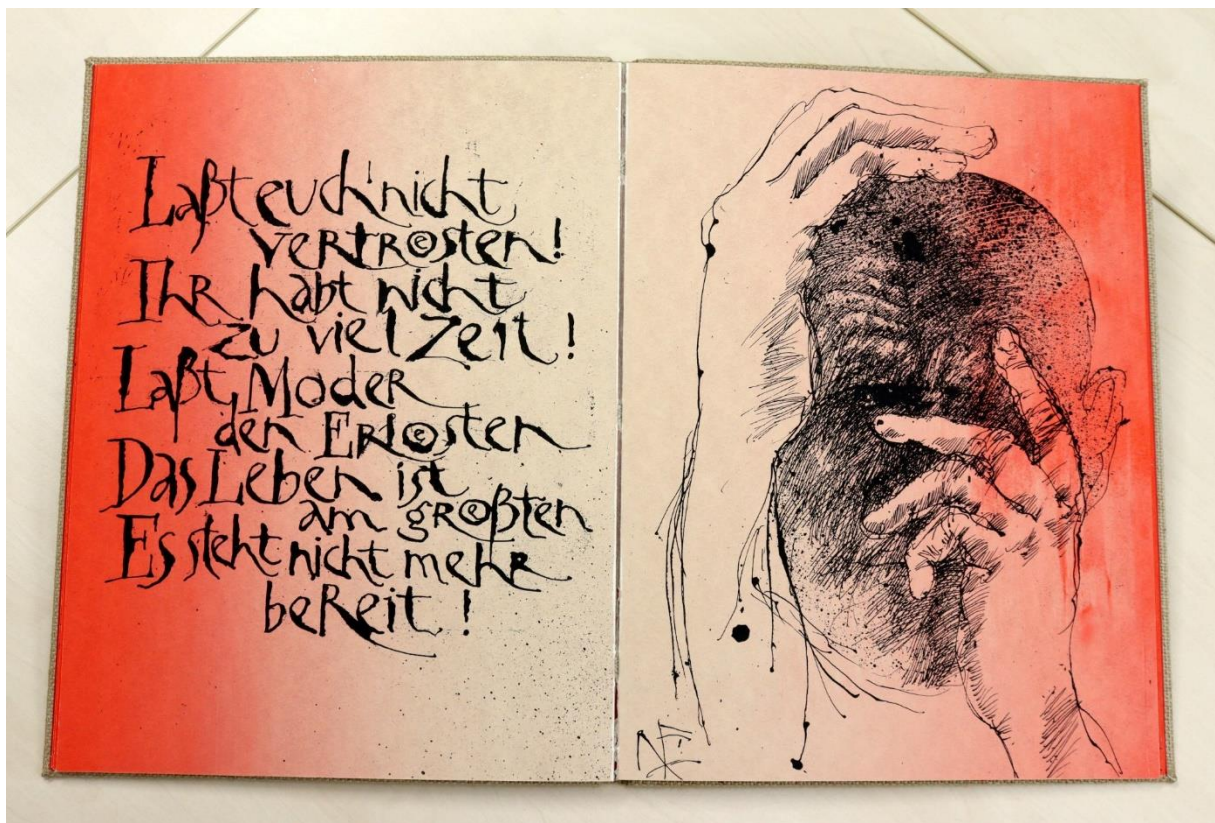 Laßt euch nicht
vertrösten!
Ihr habt nicht
zu viel Zeit!
Laßt Moder
den Erlösten
Das Leben ist
am größten
Es steht nicht mehr
bereit!